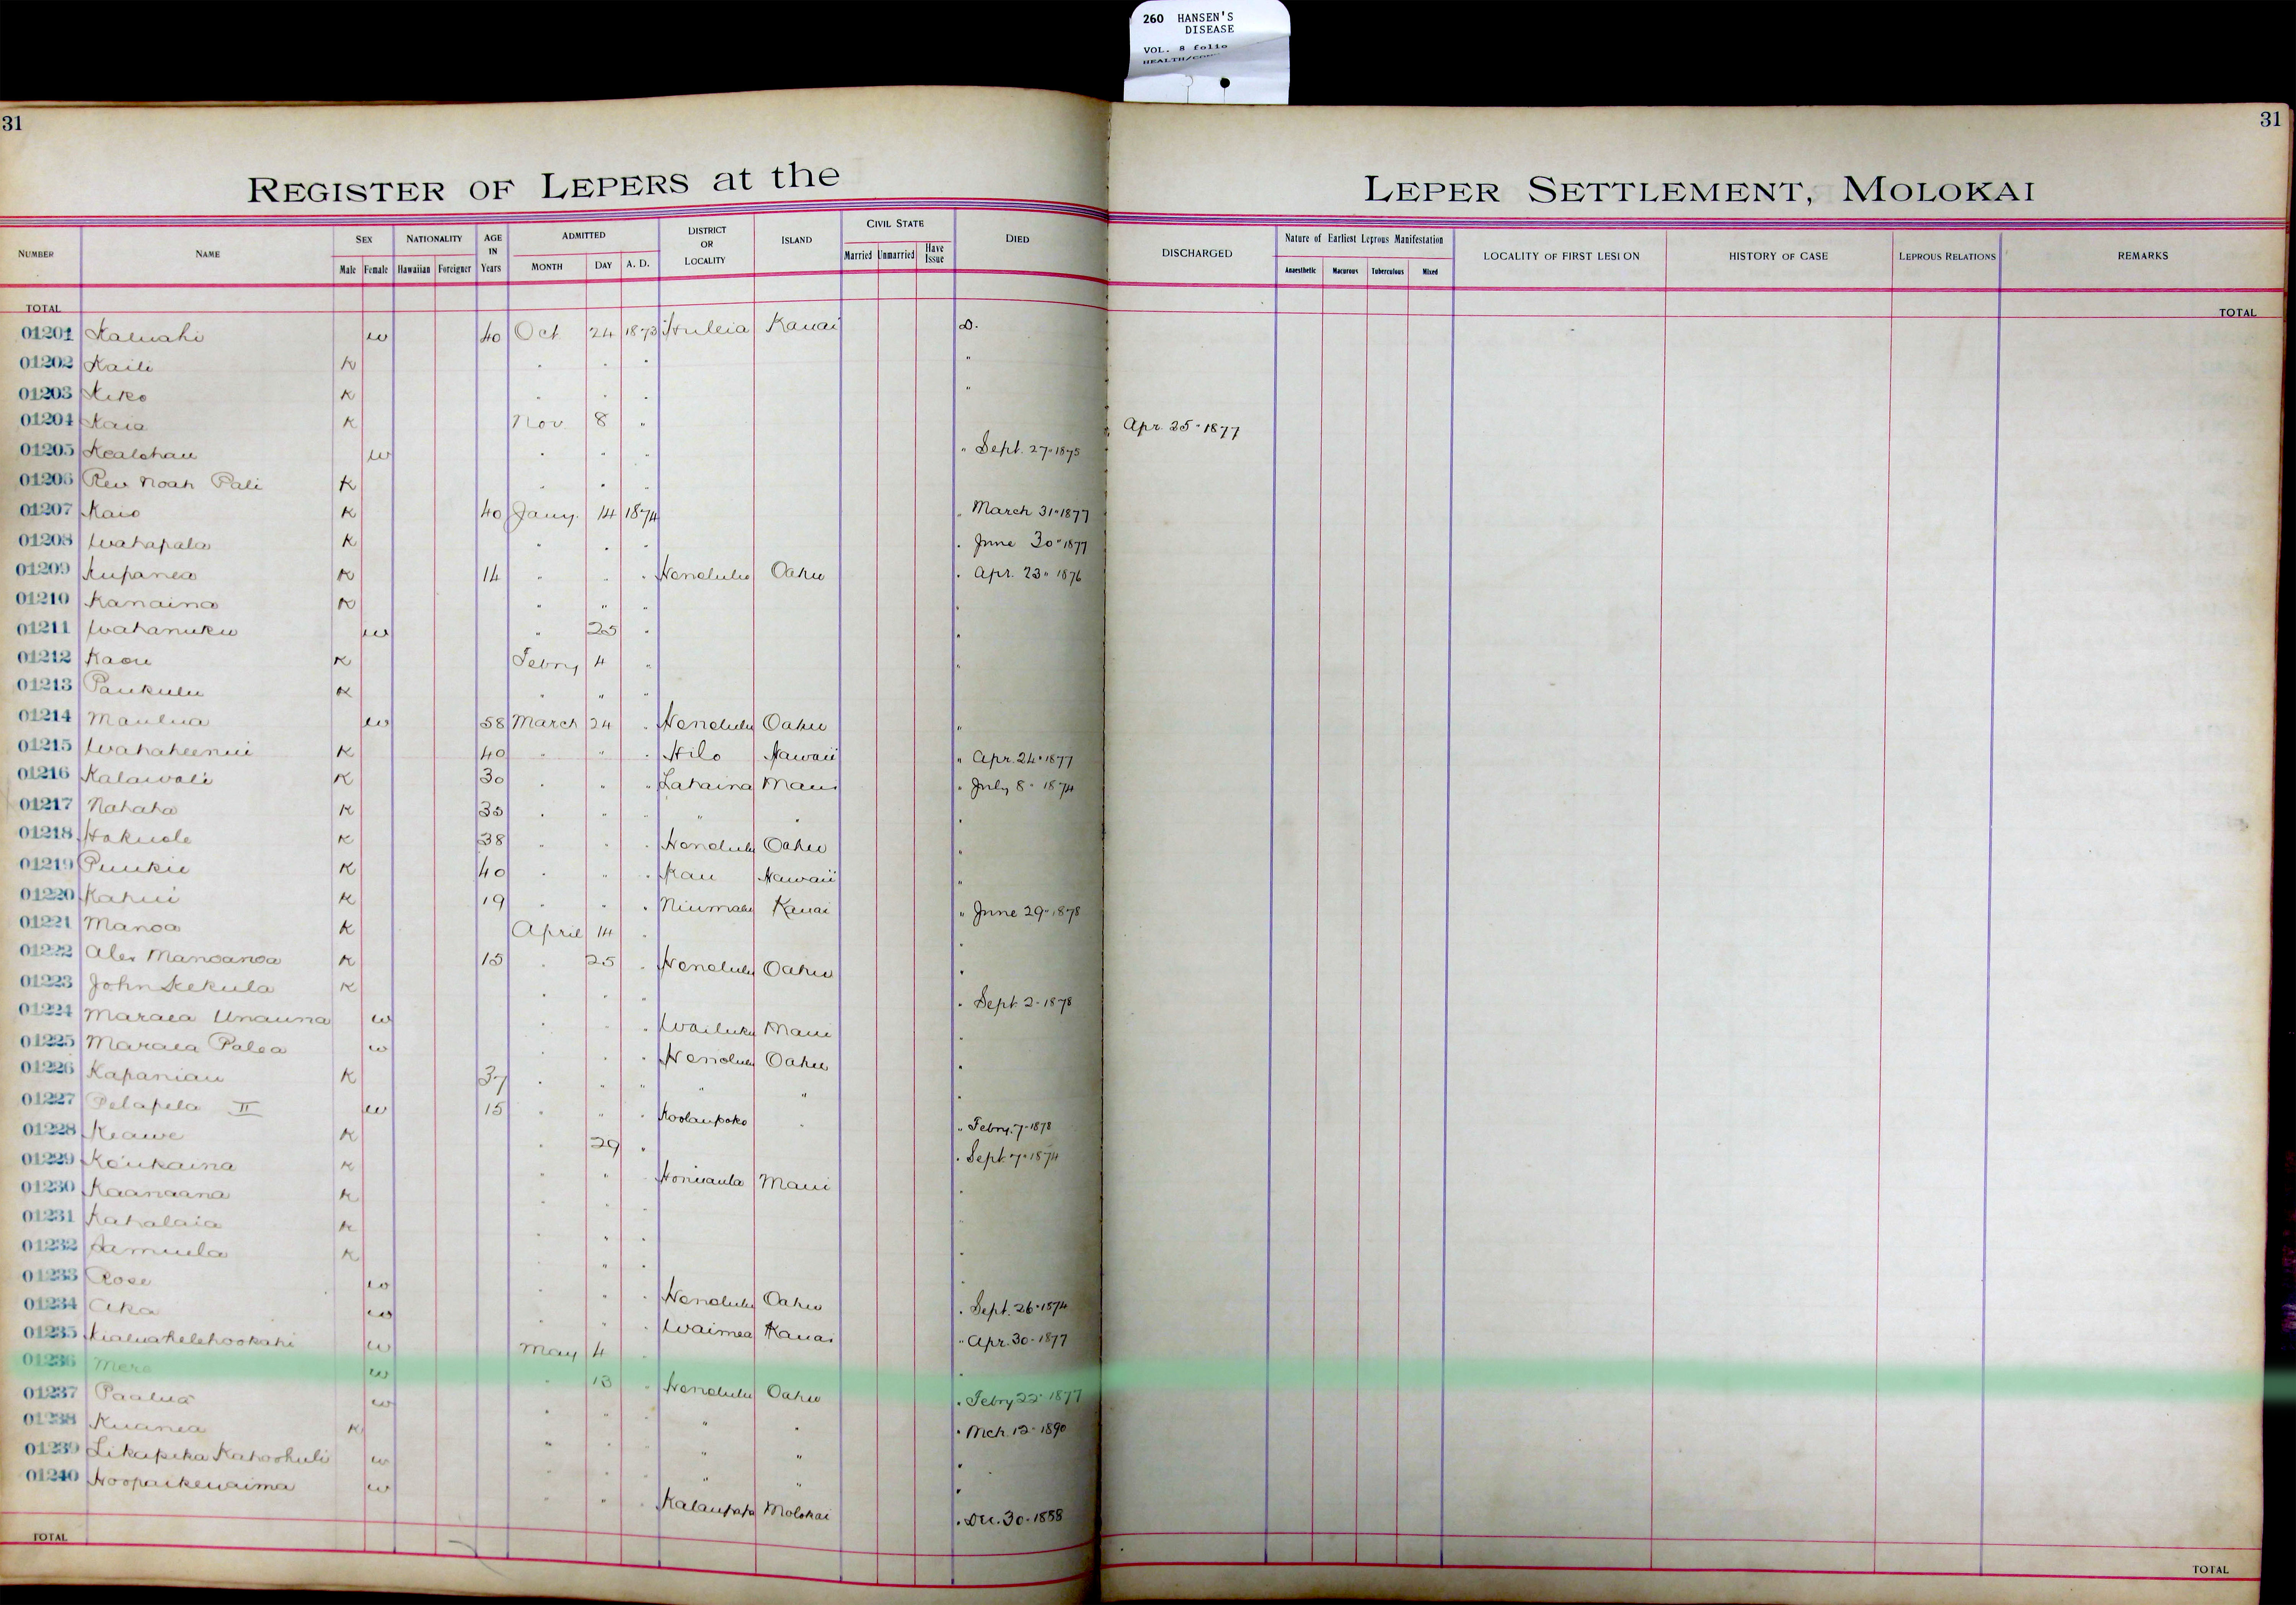 260 HANSEN'S
DISEASE
VOL. 8 folio
31
31
REGISTER OF LEPERS at the
LEPER SETTLEMENT, MOLOKAI
NUMBER NAME SEX Male Female NATIONALITY Hawaiian Foreigner AGE IN Years ADMITTED MONTH DAY A. D. DISTRICT OR LOCALITY ISLAND CIVIL STATE Married Unmarried Have Issue DIED DISCHARGED Nature of Earliest Leprous Manifestation Anaesthetic Macurous Tuberculous Mixed LOCALITY OF FIRST LESION HISTORY OF CASE LEPROUS RELATIONS REMARKS
TOTAL TOTAL
01201 Kaluahi w 40 Oct 24 1873 Huleia Kauai D.
01202 Kaili K " " " "
01203 Kiko K " " " "
01204 Kaia K Nov. 8 " " Apr. 25" 1877
01205 Kealohau w " " " " Sept. 27" 1875
01206 Rev Noah Pali K " " "
01207 Kaio K 40 Jany. 14 1874 " March 31" 1877
01208 Wahapala K " " " " June 30" 1877
01209 Kupanea K 14 " " " Honolulu Oahu " Apr. 23" 1876
01210 Kanaina K " " " "
01211 Wahanuku w " 25 " "
01212 Kaou K Febry 4 " "
01213 Paukulu K " " "
01214 Maulua w 58 March 24 " Honolulu Oahu "
01215 Wahaheenui K 40 " " " Hilo Hawaii " Apr. 24" 1877
01216 Kalawali K 30 " " " Lahaina Maui " July 8" 1874
01217 Nahaha K 35 " " " " " "
01218 Hokuole K 38 " " " Honolulu Oahu "
01219 Puukii K 40 " " " Kau Hawaii "
01220 Kahui K 19 " " " Niumalu Kauai " June 29" 1878
01221 Manoa K April 14 " "
01222 Alex Manoanoa K 15 " 25 " Honolulu Oahu "
01223 John Kekula K " " " " Sept. 2" 1878
01224 Maraea Unauna w " " " Wailuku Maui "
01225 Maraea Palea w " " " Honolulu Oahu "
01226 Kapaniau K 37 " " " " " "
01227 Pelapela II w 15 " " " Koolaupoko " " Febry. 7" 1878
01228 Keawe K " 29 " " Sept. 7" 1874
01229 Keukaina K " " " Honuaula Maui "
01230 Kaanaana K " " "
01231 Kahalaia K " " "
01232 Samuela K " " "
01233 Rose w " " " Honolulu Oahu " Sept. 26" 1874
01234 Aka w " " " Waimea Kauai " Apr. 30" 1877
01235 Kialuahelehookahi w May 4 " "
01236 Mere w " 13 " Honolulu Oahu " Febry 22" 1877
01237 Paalua w " " " " " " Mch. 12" 1890
01238 Kuanea K " " " " " "
01239 Likapeka Kahoohuli w " " " " " "
01240 Hoopaikewaima w " " " Kalaupapa Molokai " Dec. 30" 1888
TOTAL TOTAL